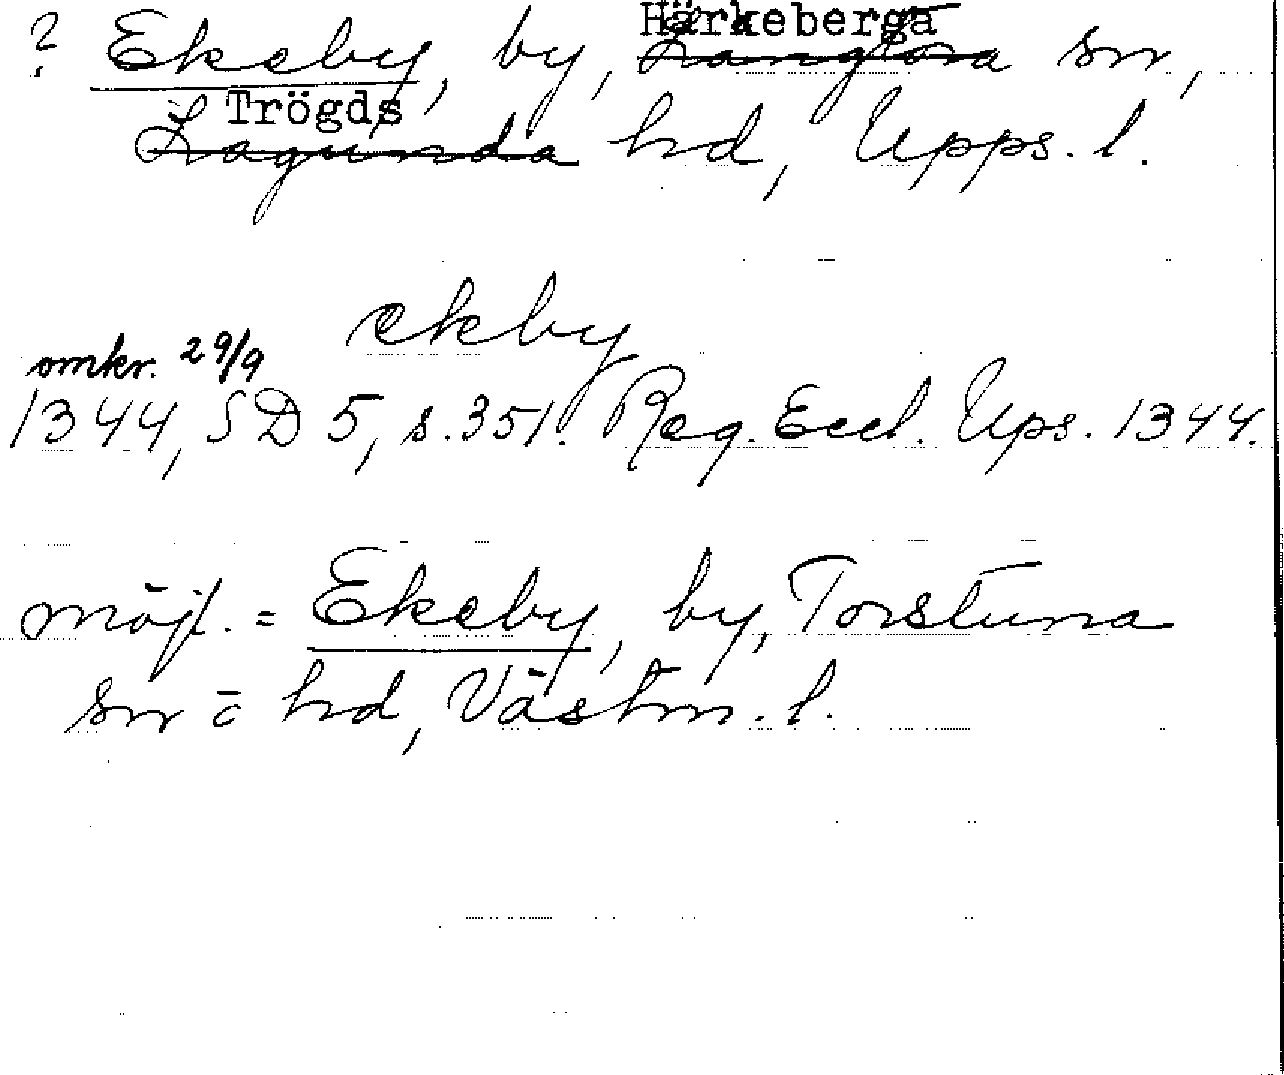 Härkeberga
? Ekeby, by, Långtora sn,
Trögds
Lagunda hd, Upps. l.
ekeby
omkr. 29/9
1344, SD 5, s. 351. Reg. Eccl. Ups. 1344.
möjl. = Ekeby, by, Torstuna
sn o hd, Västm. l.